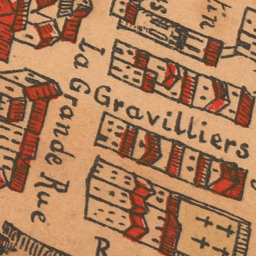 La Grande Rue
Gravilliers